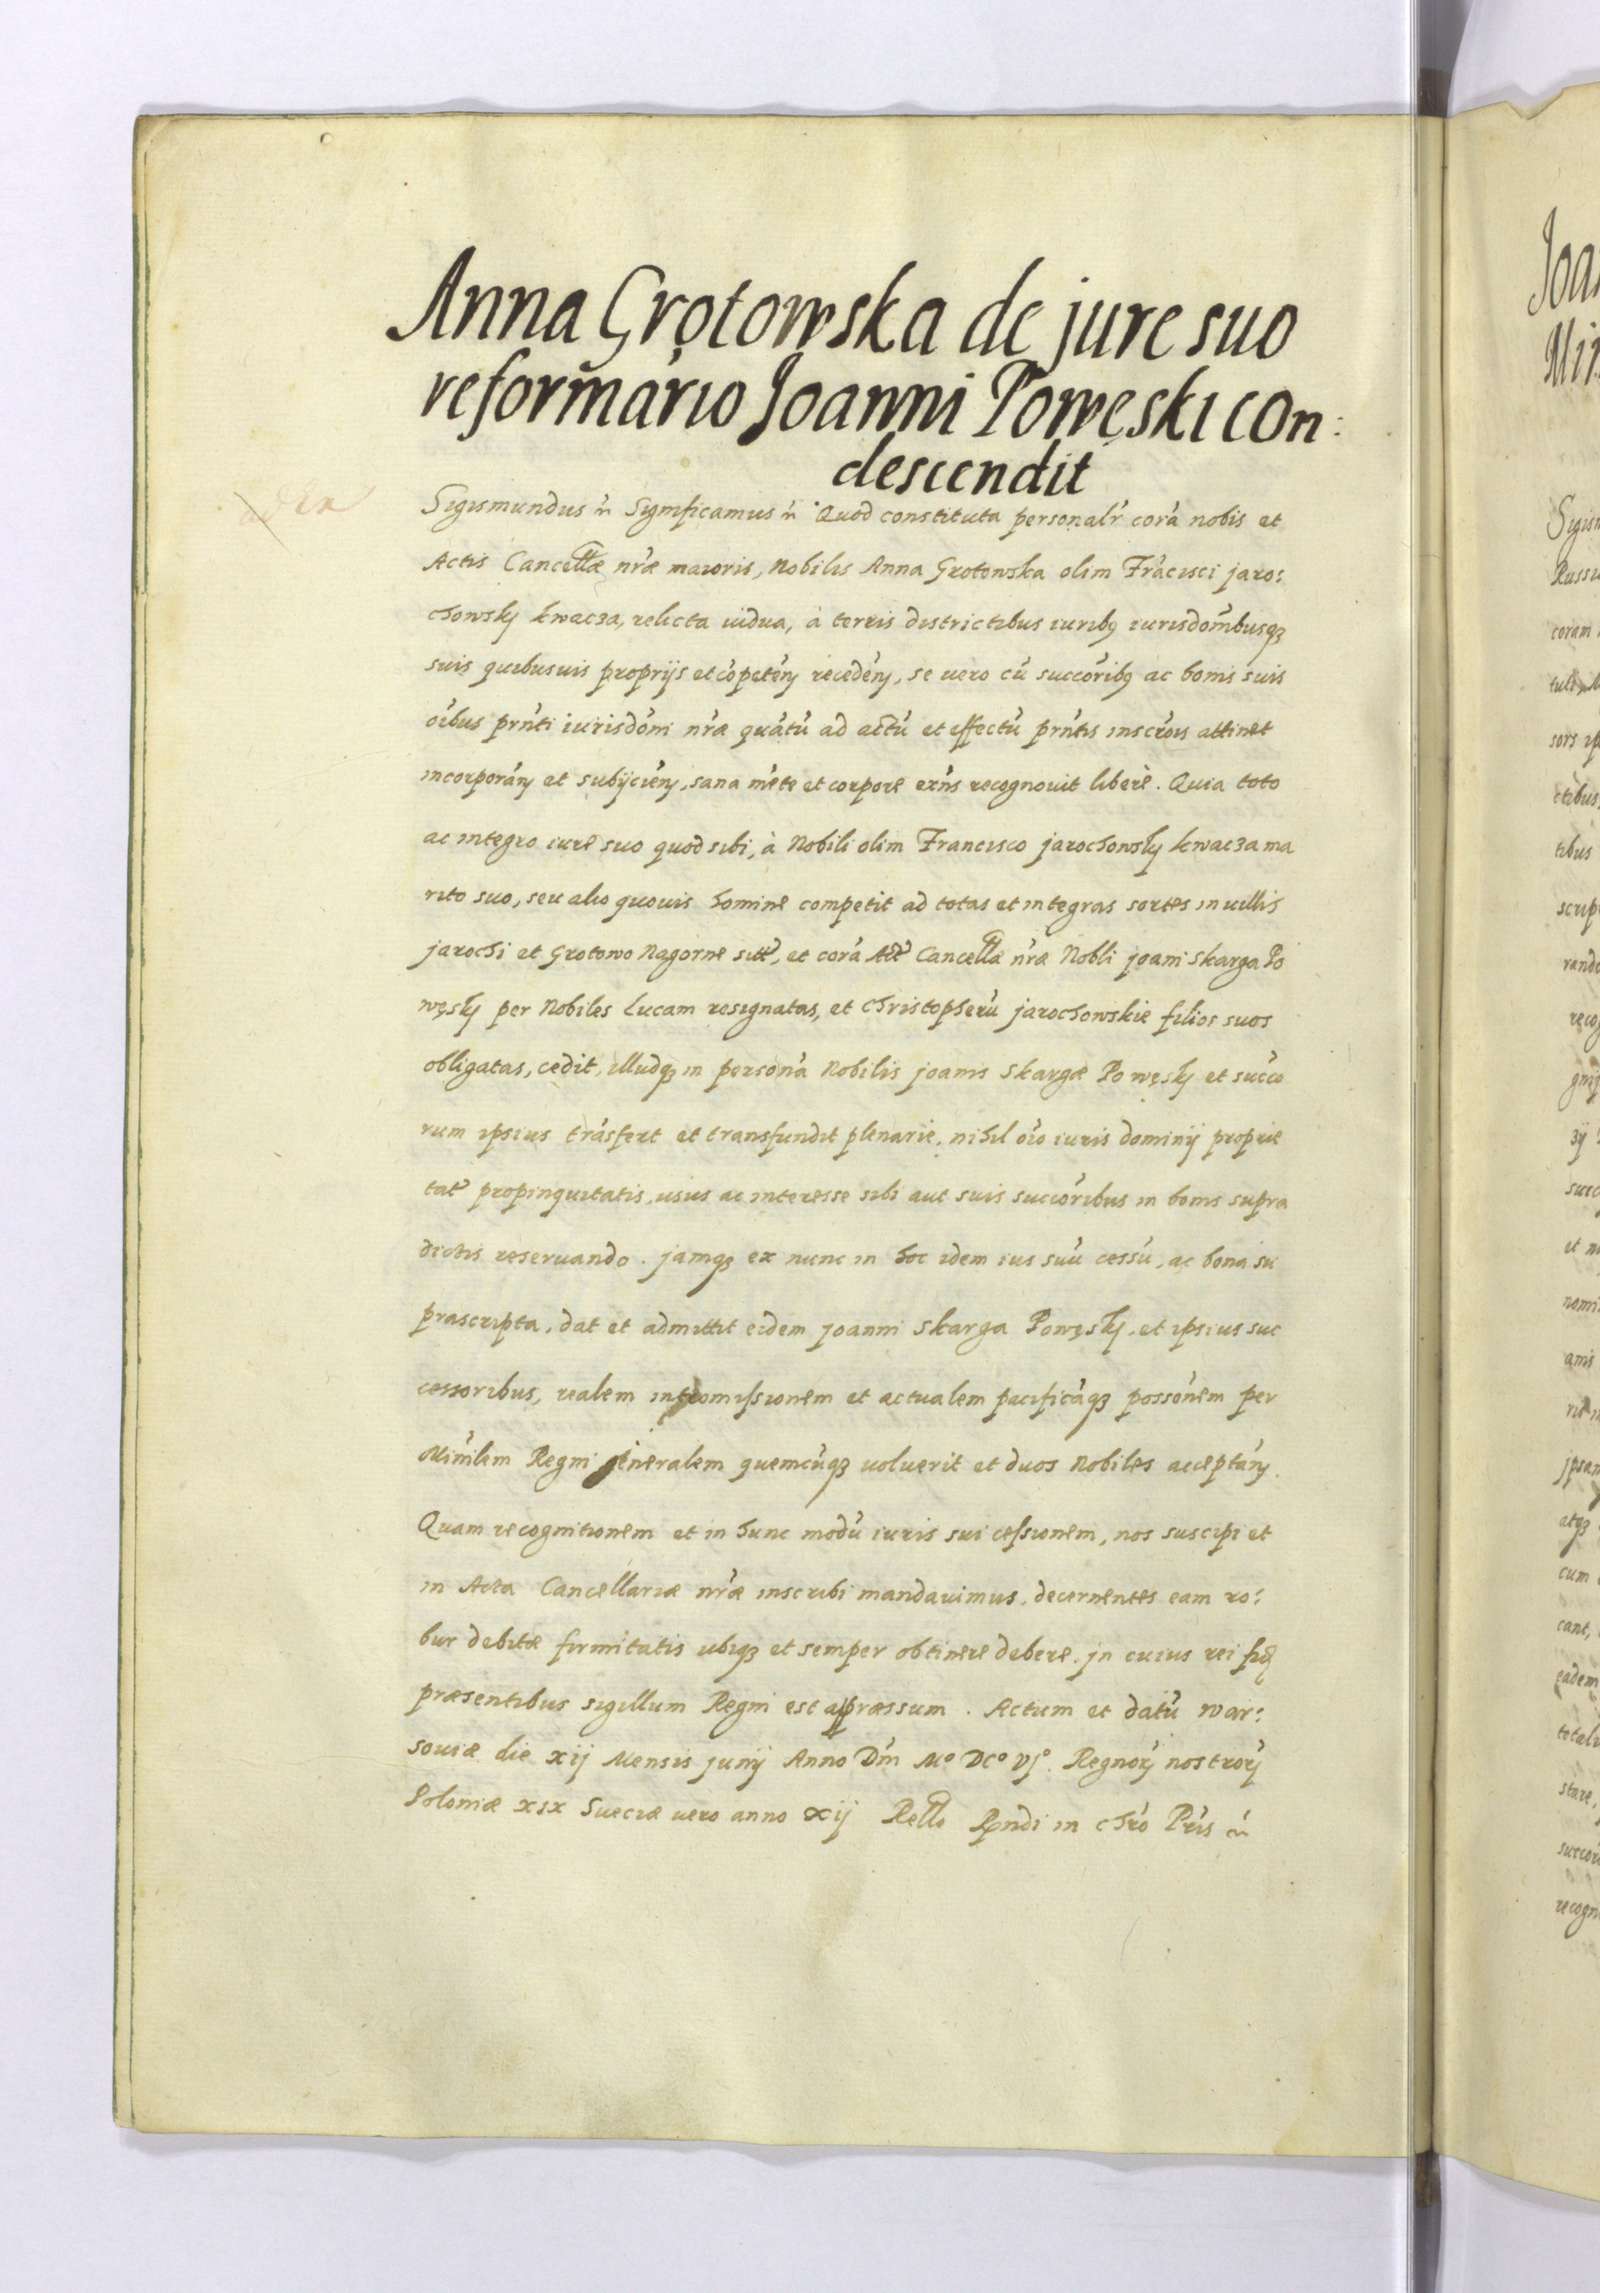 Anna Grotowska de jure suo
reformário Joanni Powęski con:
descendit
Sigismundus etc Significamus etc Quod constituta personalr corá nobis et
Actis Cancellæ nræ maioris, Nobilis Anna Grotowska olim Frácisci jaro:
chowsky kwacza, relicta vidua, à terris districtibus iuribq iurisdombusqz
suis quibusvis proprijs et cópetén recedén, se vero cú successoribq ac bonis suis
oíbus prnti iurisdóni nræ quátú ad actú et effectú prntis inscrois attinet
incorporán et subijcién, sana méte et corpore exns recognovit liberè. Quia toto
ac integro iure suo quod sibi, à Nobili olim Francisco jarochowsky kwacza ma
rito suo, seu alio quovis homine competit ad totas et integras sortes in villis
jarochi et Grotowo Nagorne sitt, et corá Cancellæ nræ Nobli joani Skarga Po
węsky per Nobiles Lucam resignatas, et Christopherú jarochowskie filios suos
obligatas, cedit, illudqz in personá Nobilis joanis Skargæ Powęsky et succo
rum ipsius trásfert et transfundit plenarie, nihil oío iuris dominij proprie
tat propinquitatis, usus ac interesse sibi aut suis succóribus in bonis supra
dictis reservando. jamqz ex nunc in hoc idem ius suú cessú, ac bona su
prascripta, dat et admittit eidem joanni Skarga Powęsky, et ipsius suc
cessoribus, realem intromissionem et actualem pacificáqz possónem per
Minílem Regni generalem quemcúqz voluerit et duos Nobiles acceptán.
Quam recognitionem et in hunc modú iuris sui cessionem, nos suscipi et
in Acta Cancellariæ nræ inscribi mandavimus, decernentes eam ro:
bur debitæ firmitatis ubiqz et semper obtinere debere. jn cuius rei fid
præsentibus sigillum Regni est appræssum. Actum et datú War:
soviæ die xij Mensis junij Anno Dm Mº DCº Vjº. Regnorú nostrorú
Poloniæ xix Sveciæ vero anno xij Rello Rndi in chró Pris etc